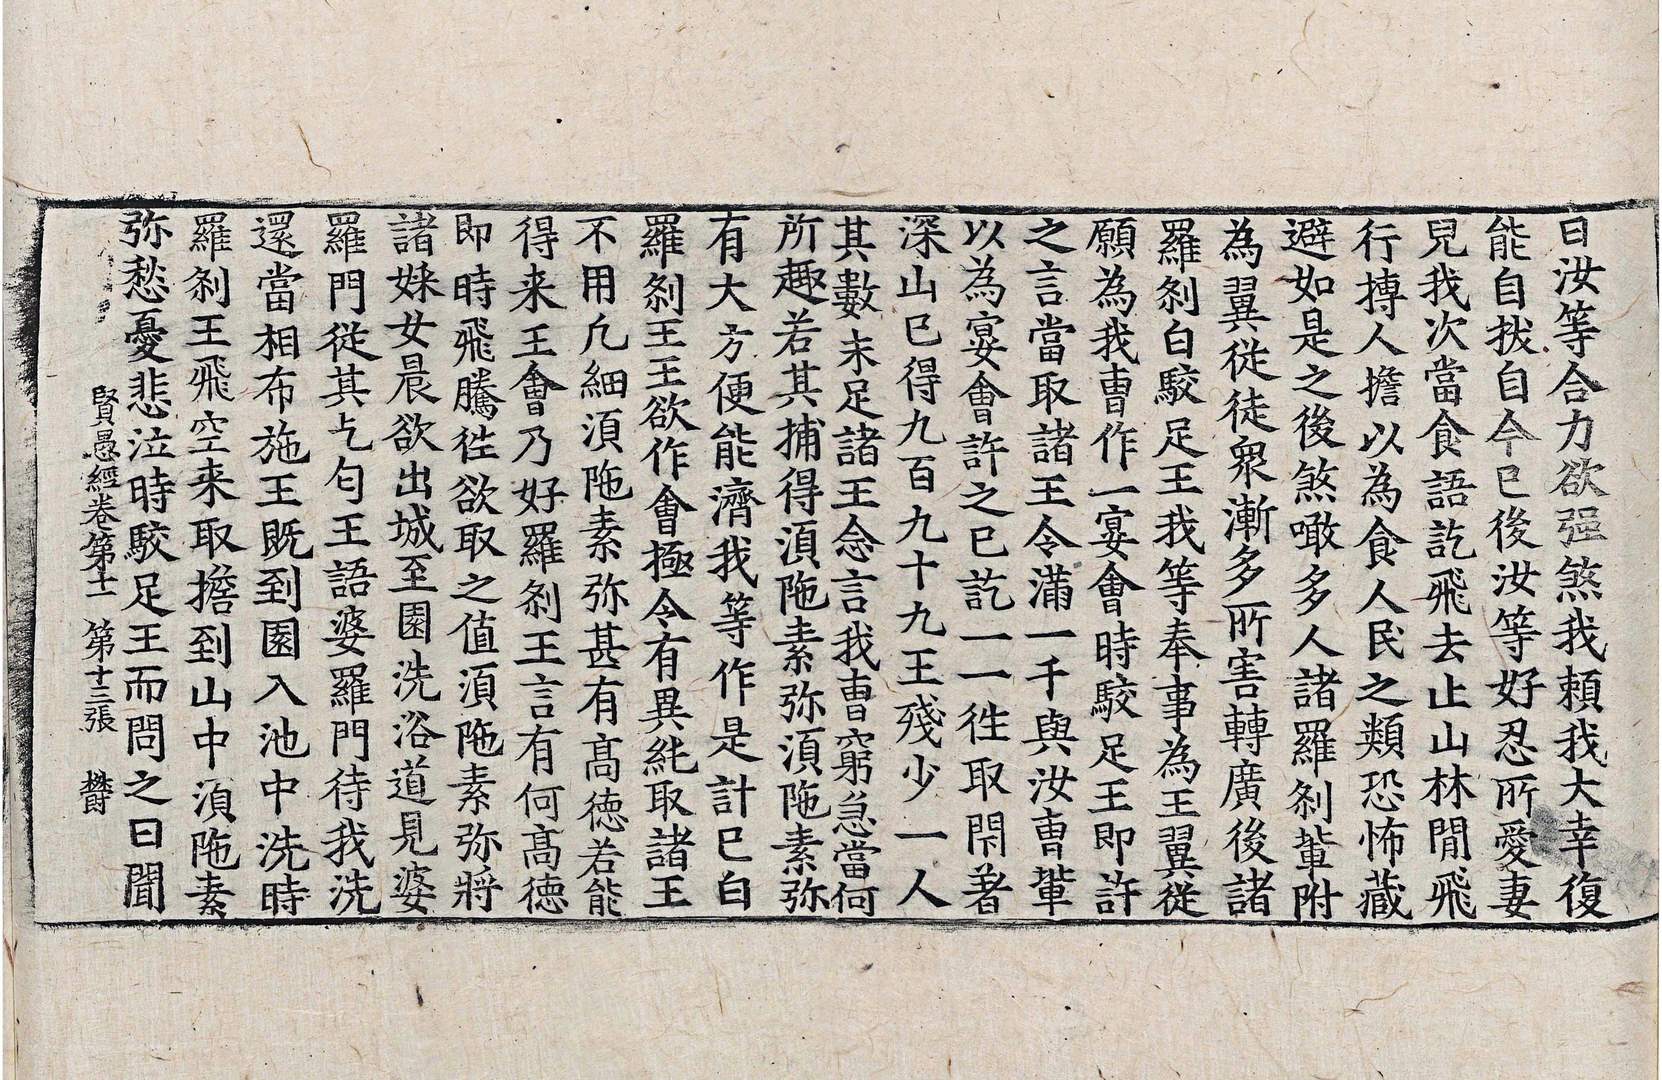 曰汝等合力欲强煞我頼我大幸復
能自拔自今已後汝等好忍所愛妻
兒我次當食語訖飛去止山林閒飛
行搏人擔以為食人民之類恐怖藏
避如是之後煞噉多人諸羅刹輩附
為翼從徒衆漸多所害轉廣後諸
羅刹白駮足王我等奉事為王翼從
願為我曺作一宴會時駮足王即許
之言當取諸王令滿一千與汝曺輩
以為宴會許之已訖一一徃取閇著
深山已得九百九十九王殘少一人
其數未足諸王念言我曺窮急當何
所趣若其捕得湏陁素弥湏陁素弥
有大方便能濟我等作是計已白
羅刹王王欲作會極令有異純取諸王
不用凢細湏陁素弥甚有髙德若能
得来王會乃好羅刹王言有何髙德
即時飛騰徃欲取之值湏陁素弥將
諸婇女晨欲出城至園洗浴道見婆
羅門從其乞匂王語婆羅門待我洗
還當相布施王既到園入池中洗時
羅刹王飛空来取擔到山中湏陁素
弥愁憂悲泣時駮足王而問之曰聞
賢愚經卷第十一 第十三張 欝